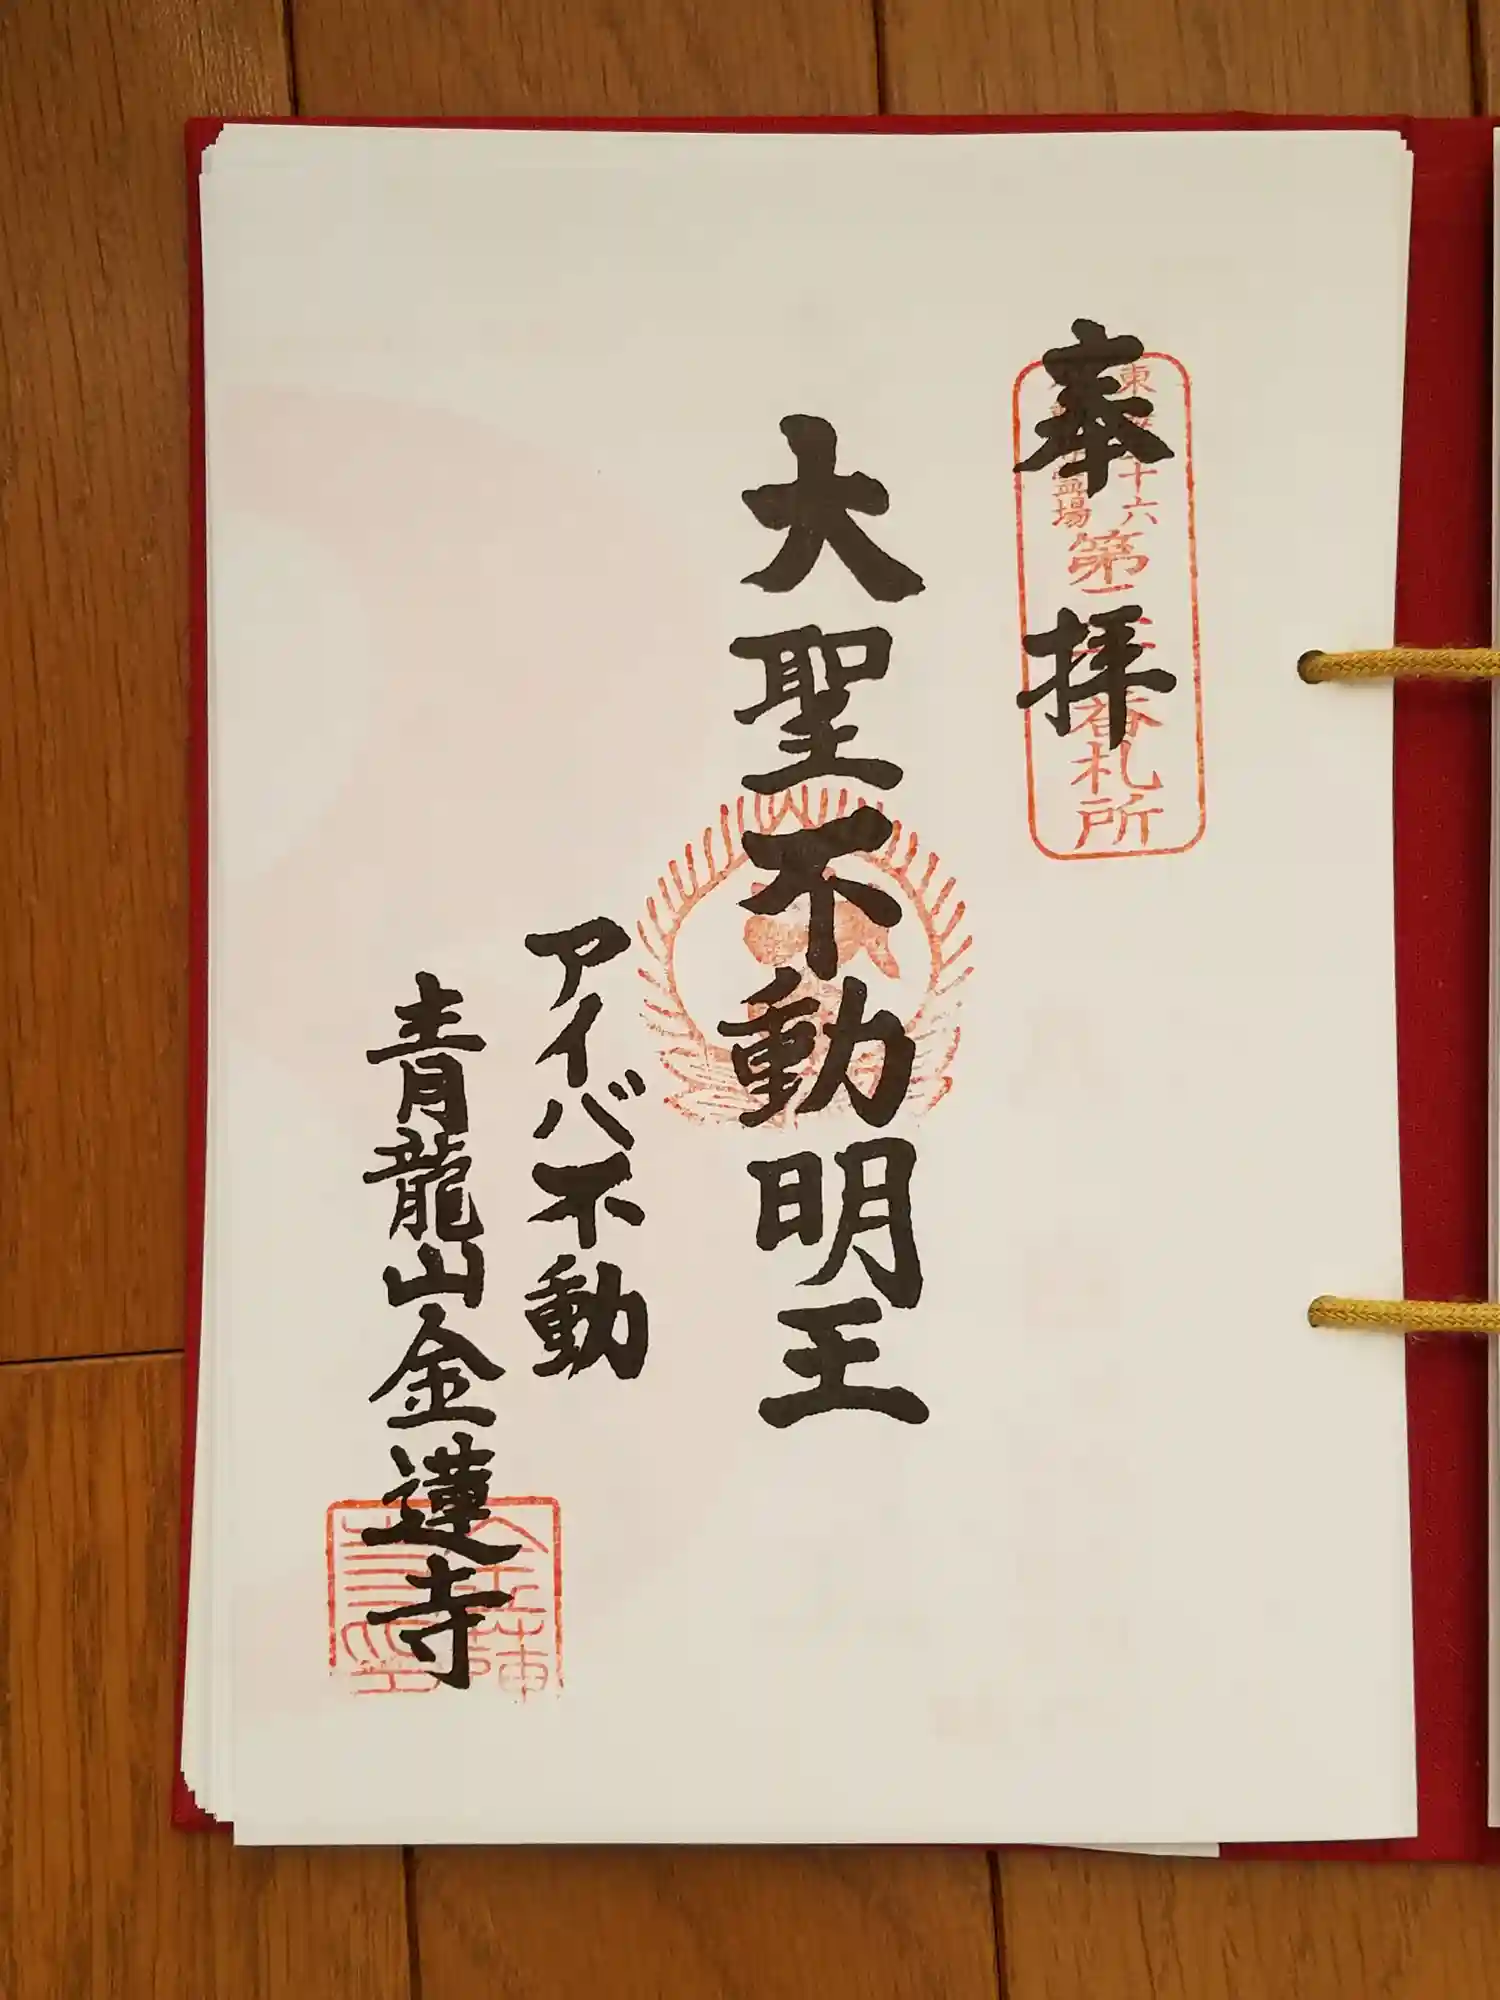 奉拝
東海三十六
不動尊霊場
第
番札所
大聖不動明王
アイバ不動
青龍山金蓮寺